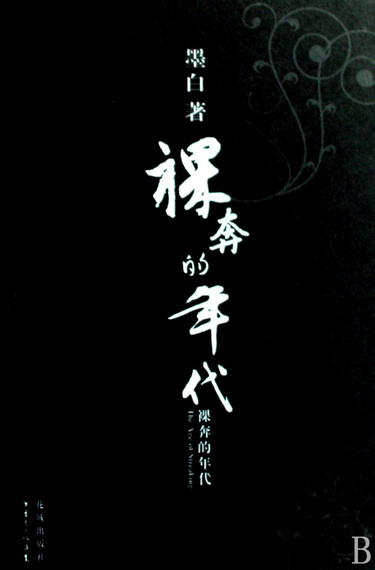 墨白著
裸奔的年代
裸奔的年代
The Age of Streaking
花城出版社
B